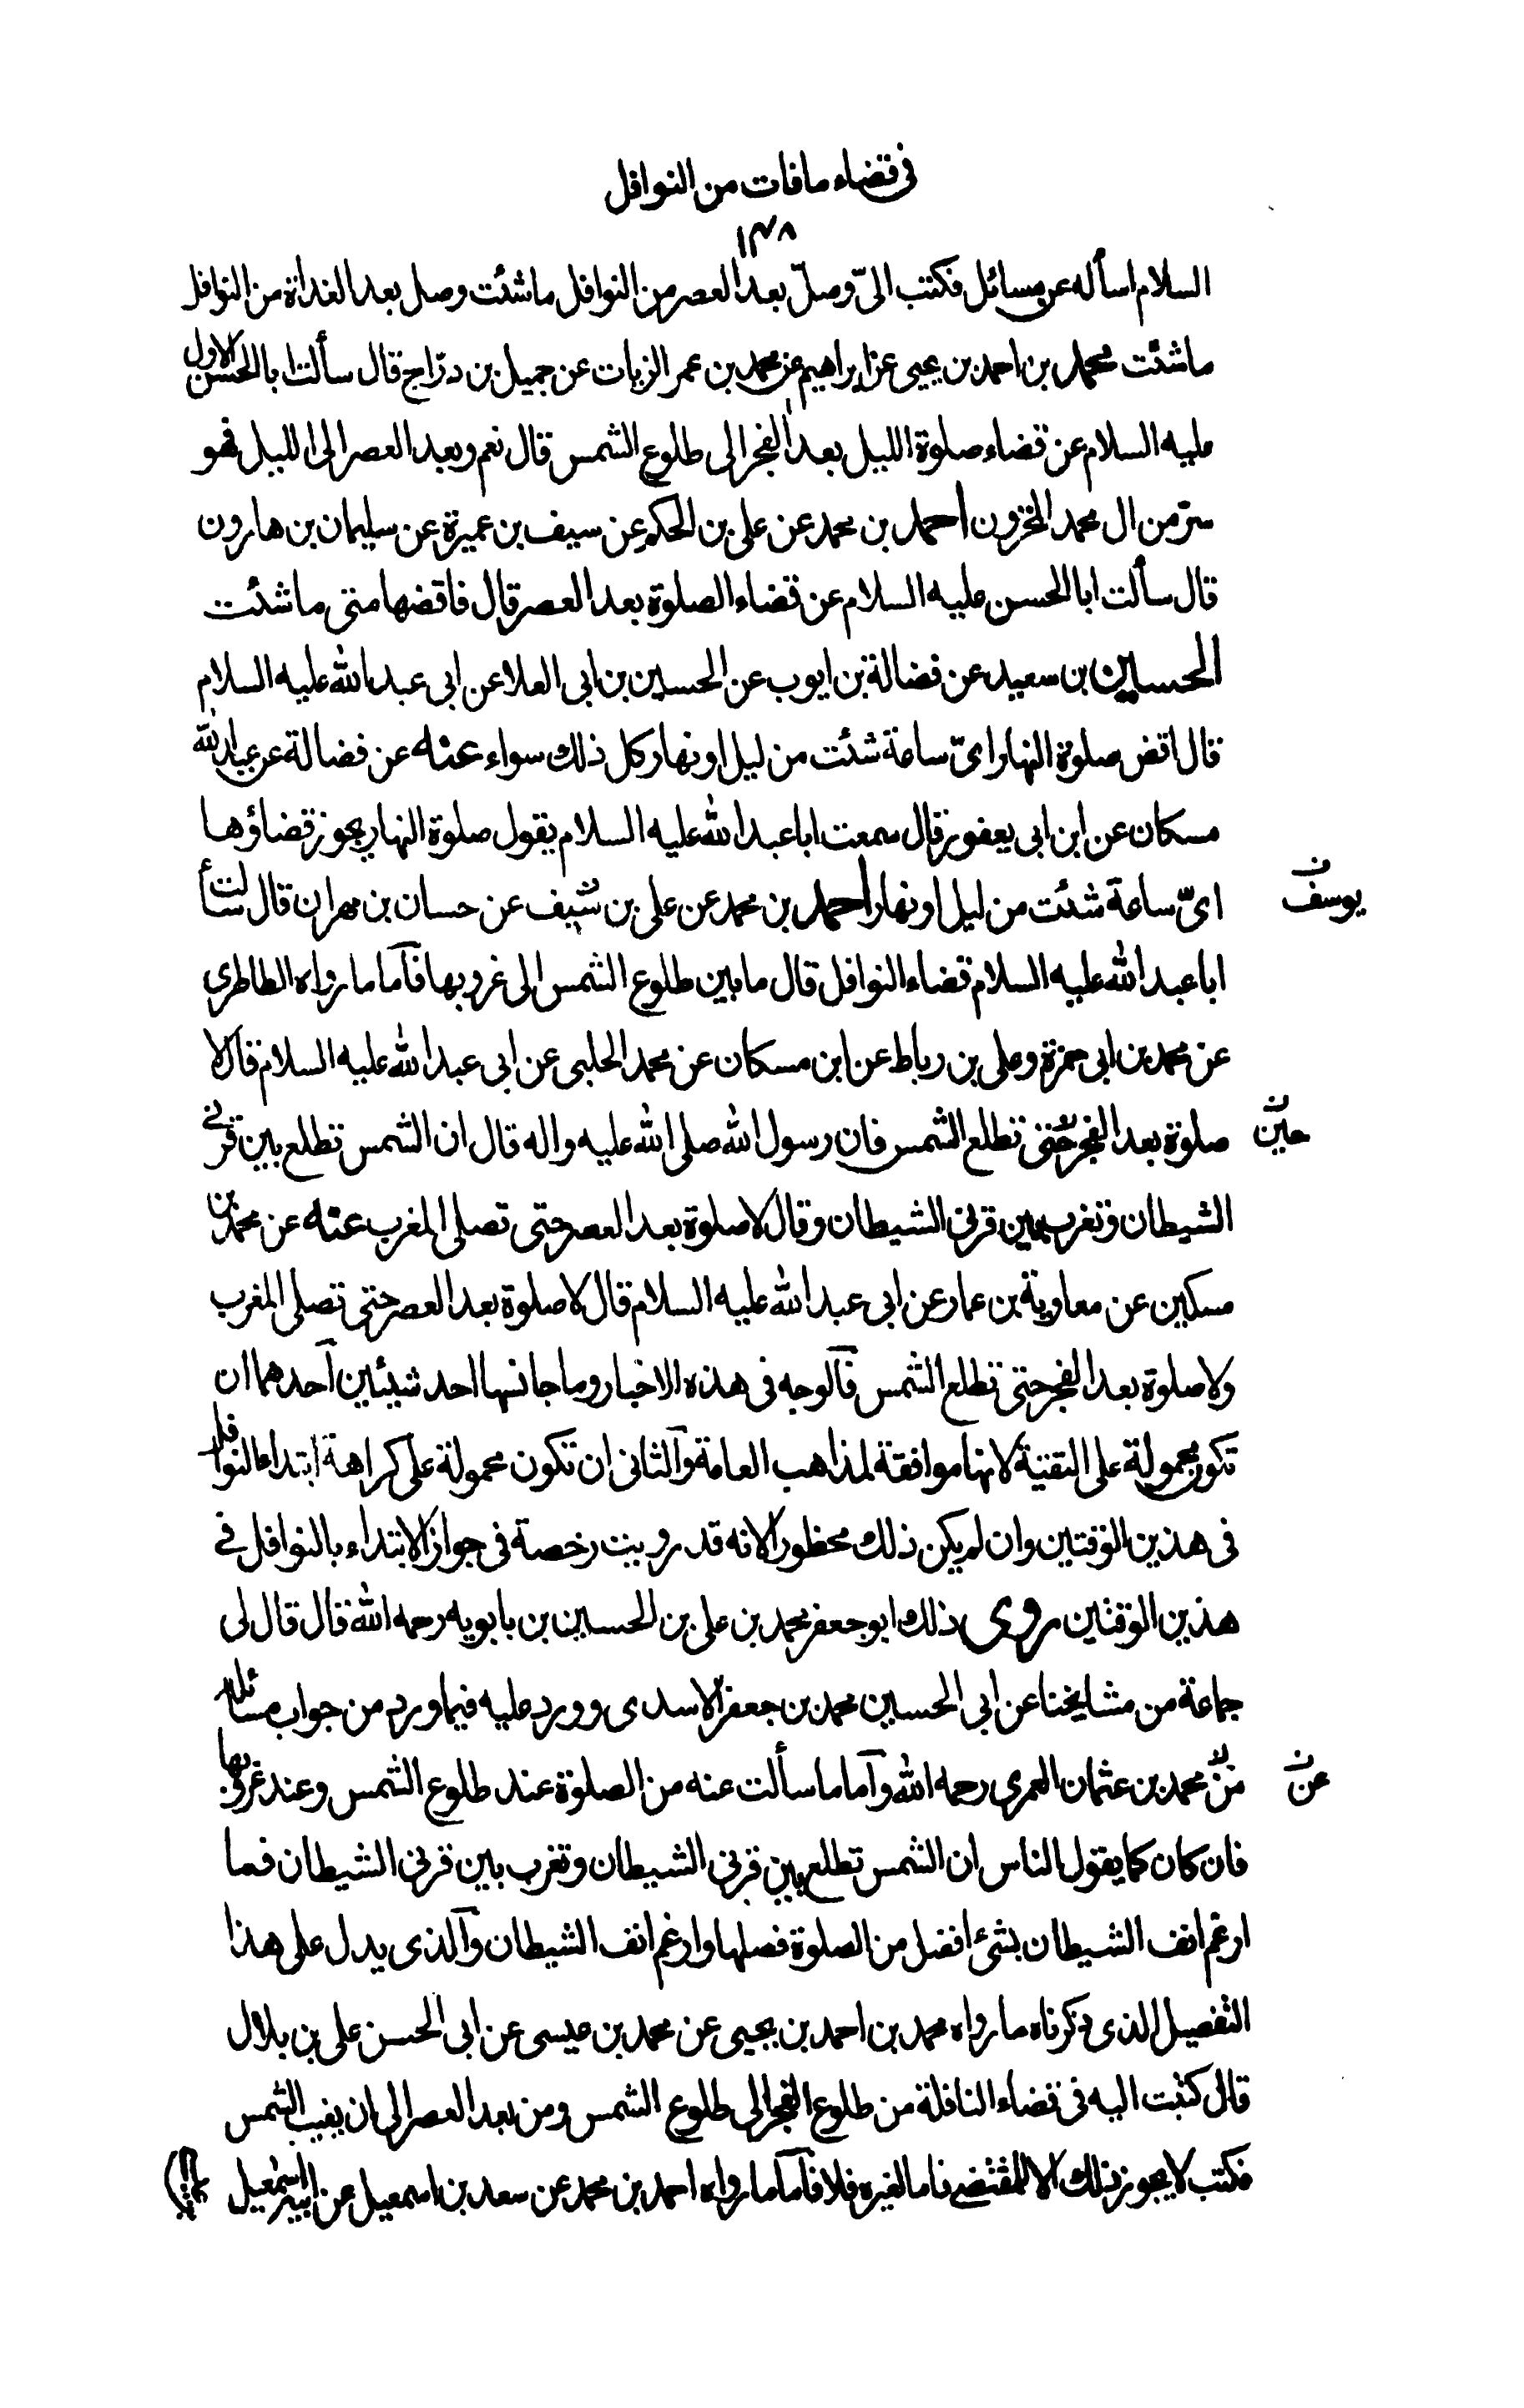 فی قضاء ما فات من النوافل
۱۴۸
السلام اسأله عن مسائل فكتب الیّ وصلّ بعد العصر من النوافل ما شئت وصل بعد الغداة من النوافل
ما شئت محمد بن احمد بن یحیی عن ابراهیم عن محمد بن عمر الزیات عن جمیل بن درّاج قال سألت ابا الحسن الاول
علیه السلام عن قضاء صلوة اللیل بعد الفجر الی طلوع الشمس قال نعم وبعد العصر الی اللیل فهو
سرّ من ال محمد المخزون احمد بن محمد عن علی بن الحكم عن سیف بن عمیرة عن سلیمان بن هارون
قال سألت ابا الحسن علیه السلام عن قضاء الصلوة بعد العصر قال فاقضها متی ما شئت
الحسین بن سعید عن فضالة بن ایوب عن الحسین بن ابی العلا عن ابی عبد الله علیه السلام
قال اقض صلوة النهار ایّ ساعة شئت من لیل او نهار كل ذلك سواء عنه عن فضالة عن عبد الله
مسكان عن ابن ابی یعفور قال سمعت ابا عبد الله علیه السلام یقول صلوة النهار یجوز قضاؤها
ایّ ساعة شئت من لیل او نهار احمد بن محمد عن علی بن سیف عن حسان بن مهران قال سألت
یوسف ن
ابا عبد الله علیه السلام قضاء النوافل قال ما بین طلوع الشمس الی غروبها فآما ما رواه الطاطری
عن محمد بن ابی حمزة وعلی بن رباط عن ابن مسكان عن محمد الحلبی عن ابی عبد الله علیه السلام قال لا
صلوة بعد الفجر حتی تطلع الشمس فان رسول الله صلی الله علیه واله قال ان الشمس تطلع بین قرنی
حین ن
الشیطان وتغرب بین قرنی الشیطان وقال لا صلوة بعد العصر حتی تصلی المغرب عنه عن محمد بن
مسكین عن معاویة بن عمار عن ابی عبد الله علیه السلام قال لا صلوة بعد العصر حتی تصلی المغرب
ولا صلوة بعد الفجر حتی تطلع الشمس فآلوجه فی هذه الاخبار وما جانسها احد شیئین آحدهما ان
تكون محمولة علی التقیة لانها موافقة لمذاهب العامة وآلثانی ان تكون محمولة علی كراهة ابتداء النوافل
فی هذین الوقتین وان لم یكن ذلك محظورا لانه قد رویت رخصة فی جواز الابتداء بالنوافل فی
هذین الوقتین روی ذلك ابو جعفر محمد بن علی بن الحسین بن بابویه رحمه الله قال قال لی
جماعة من مشایخنا عن ابی الحسین محمد بن جعفر الاسدی وورد علیه فیما ورد من جواب مسائله
من محمد بن عثمان العمری رحمه الله وآما ما سألت عنه من الصلوة عند طلوع الشمس وعند غروبها
عن ن
فان كان كما یقول الناس ان الشمس تطلع بین قرنی الشیطان وتغرب بین قرنی الشیطان فما
ارغم انف الشیطان بشئ افضل من الصلوة فصلها وارغم انف الشیطان وآلذی یدل علی هذا
التفصیل الذی ذكرناه ما رواه محمد بن احمد بن یحیی عن محمد بن عیسی عن ابی الحسن علی بن بلال
قال كتبت الیه فی قضاء النافلة من طلوع الفجر الی طلوع الشمس ومن بعد العصر الی ان یغیب الشمس
فكتب لا یجوز ذلك الا للمقتضی فاما لغیره فلا فآما ما رواه احمد بن محمد عن سعد بن اسمعیل عن ابیه اسمعیل